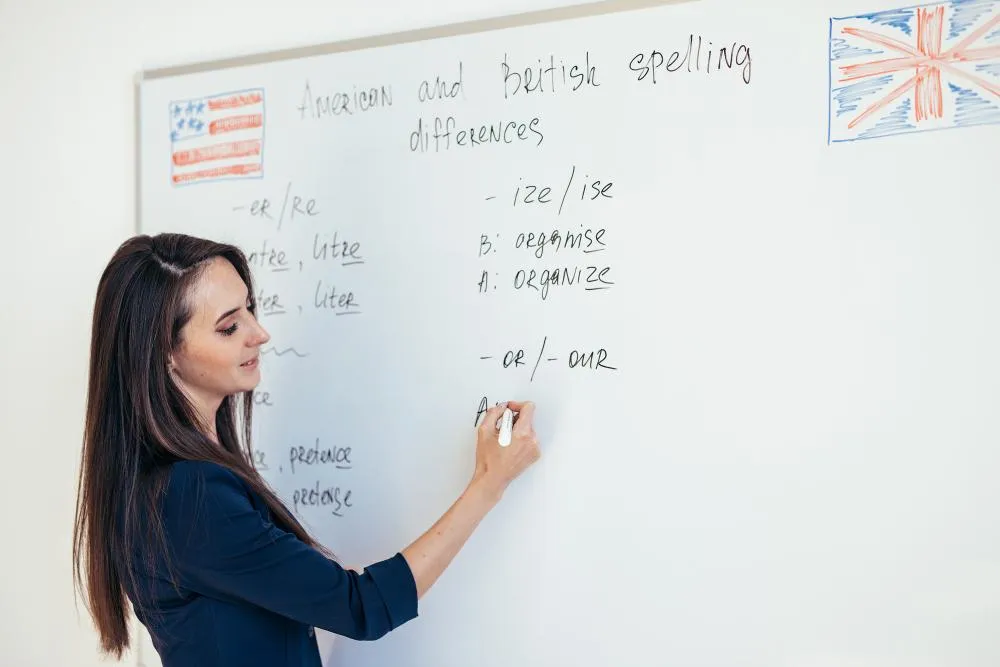 American and British spelling
differences
-er/re
litre
liter
pretence
pretense
- ize/ise
B: organise
A: organize
- or/- our
A: